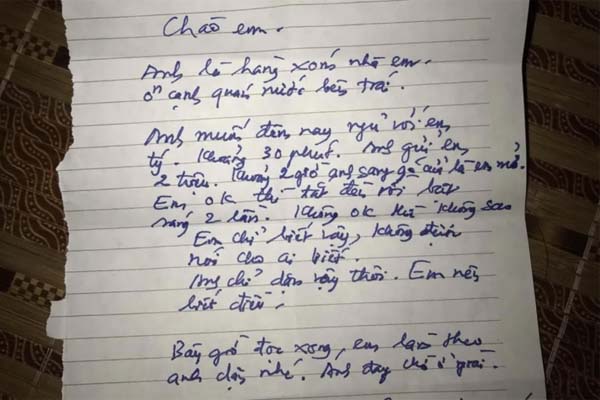 Chào em.
Anh là hàng xóm nhà em.
ở cạnh quán nước bên trái.
Anh muốn đêm nay ngủ với em
tý. Khoảng 30 phút. Anh gửi em
2 triệu. Khoảng 2 giờ anh sang gõ cửa là em mở.
Em ok thì tắt đèn rồi bật
sáng 2 lần. Không ok thì không sao
Em chỉ biết vậy, không được
nói cho ai biết.
Anh chỉ dặn vậy thôi. Em nên
biết điều.
Bây giờ đọc xong, em làm theo
anh dặn nhé. Anh đay